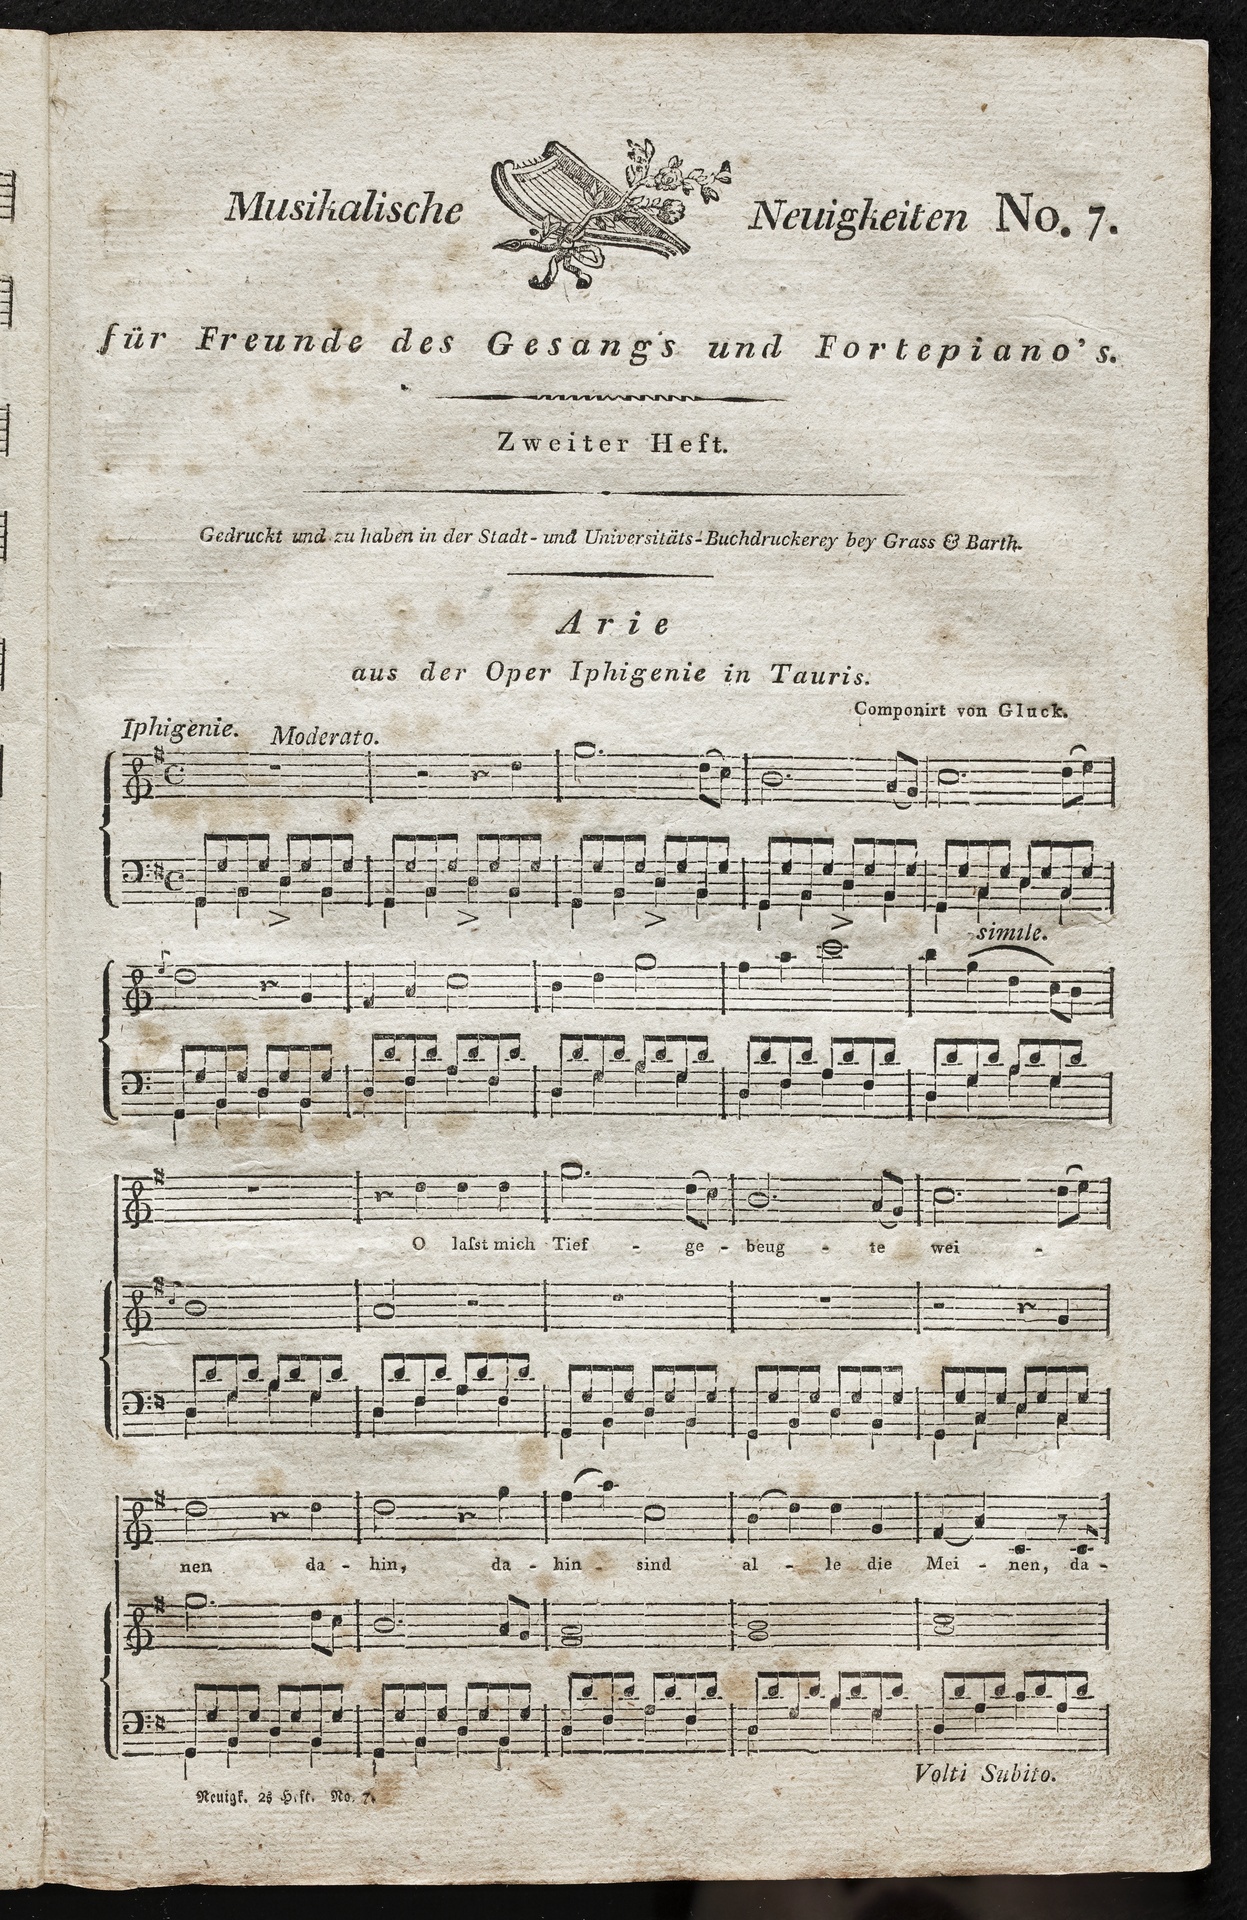 Musikalische Neuigkeiten No. 7.
für Freunde des Gesang's und Fortepiano's.
Zweiter Heft.
Gedruckt und zu haben in der Stadt- und Universitäts-Buchdruckerey bey Grass & Barth.
Arie
aus der Oper Iphigenie in Tauris.
Componirt von Gluck.
Iphigenie. Moderato.
simile.
O laſst mich Tief - ge - beug - te wei -
nen da - hin, da - hin - sind al - le die Mei - nen, da -
Volti Subito.
Neuigk. 2s Heft. No. 7.